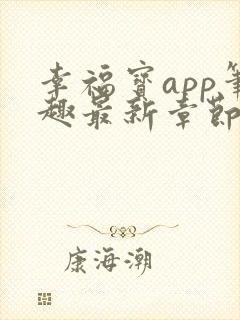 幸福宝app笔
趣最新章节
康海潮